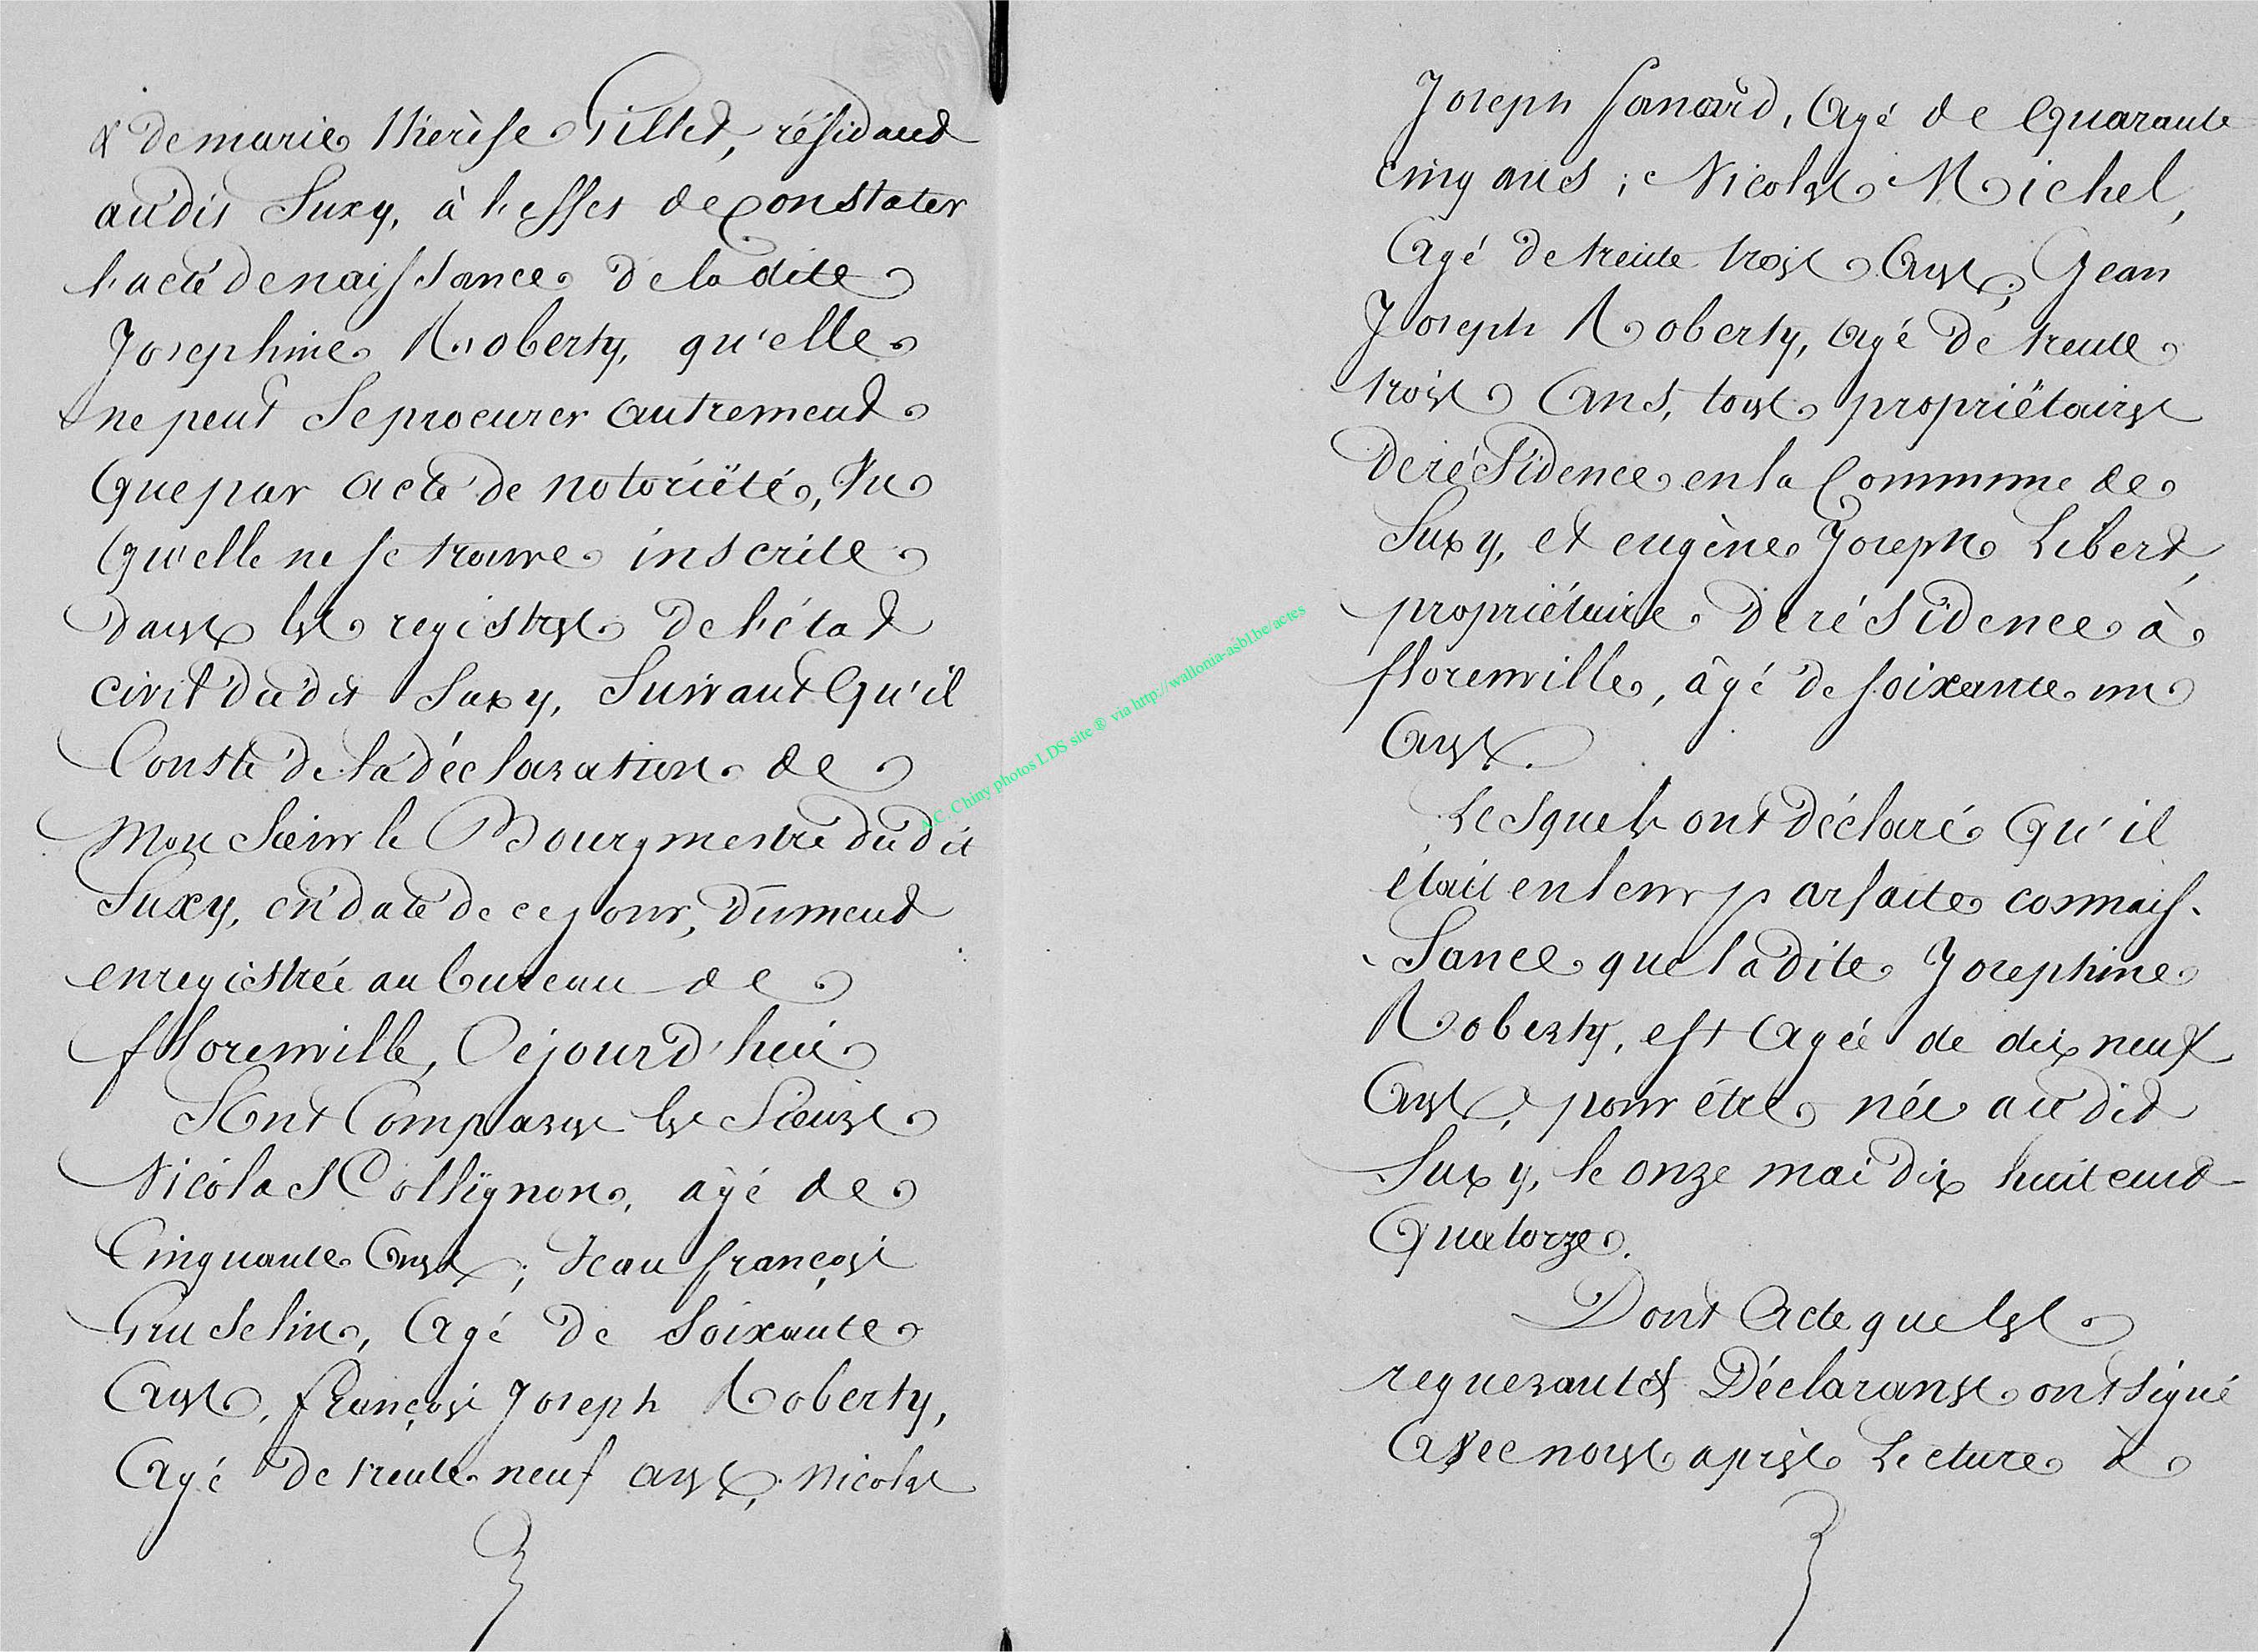 & de marie thérèse Gillet, résidant
audit Suxy, à l'effet de constater
l'acte de naissance de la dite
Josephine Roberty, qu'elle
ne peut se procurer autrement
que par acte de notoriëté, Vu
qu'elle ne se trouve inscrite
dans les registres de l'état
civil du dit Suxy, Suivant qu'il
Conste de la déclaration de
Monsieur le Bourgmestre du dit
Suxy, en date de ce jour, dûment
enregistrée au bureau de
florenville, Cejourd'hui
Sont Comparus les Sieurs
Nicolas Collignon, âgé de
Cinquante ans; Jean françois
Gruselin, agé de Soixante
ans, françois Joseph Roberty,
agé de trente neuf ans; Nicolas
Joseph fanard, agé de quarante
cinq ans; Nicolas Michel,
agé de trente trois ans; Jean
Joseph Roberty, agé de trente
trois ans, tous propriëtaires
de résidence en la Commune de
Suxy, et eugène Joseph Libert,
propriétaire de résidence à
florenville, âgé de soixante un
ans.
Lesquels ont déclaré qu'il
était en leur parfaite connais-
-Sance que la dite Josephine
Roberty, est agée de dix neuf
ans, pour être née audit
Suxy, le onze mai dix huit cent
quatorze.
Dont acte que les
requerant & Déclarans ont signé
avec nous après Lecture à
A.C. Chiny photos LDS site ® via http://wallonia-asbl.be/actes